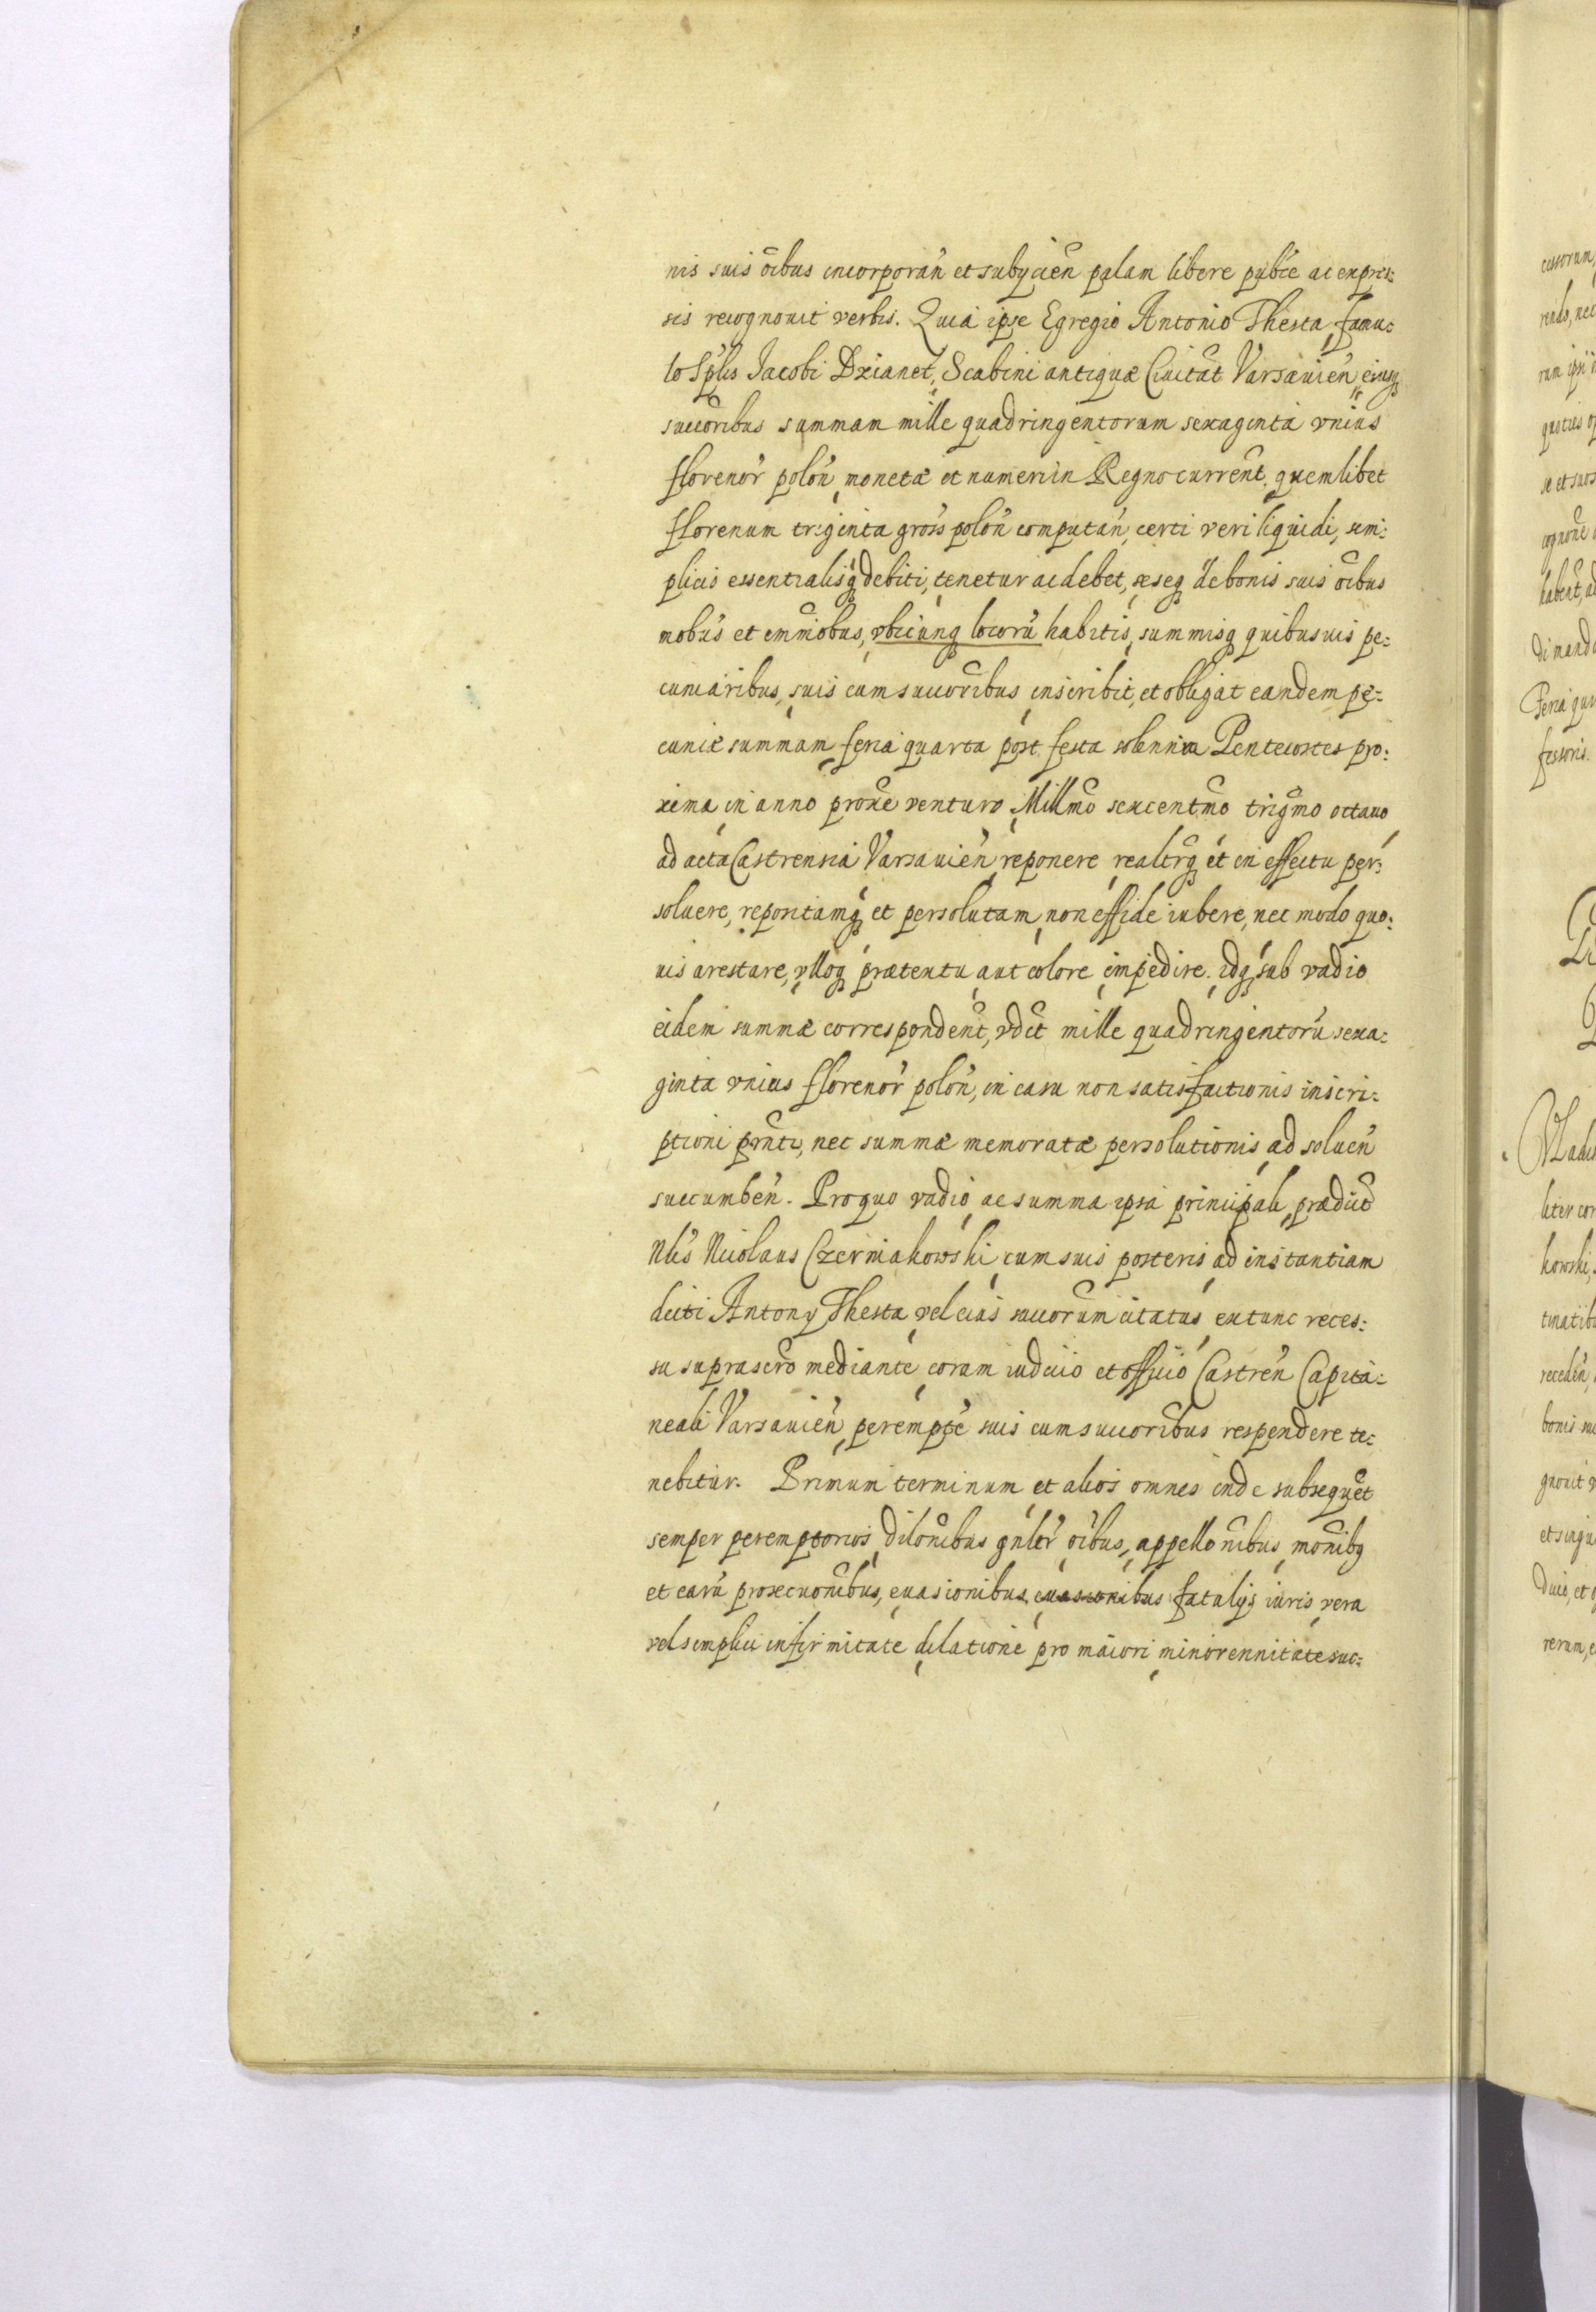 nis suis oībus incorporan̄ et subijcien̄ palam libere publce ac expres:
sis recognouit verbis. Quia ipse Egregio Antonio Thesta, famu:
lo Splis Jacobi Dzianet, Scabini antiquæ Ciuitat̄ Varsauien̄, eiusq
succoribus summam mille quadringentorum sexaginta vnius
fflorenor̄ polon̄, monetæ et numeri in Regno current̄. quemlibet
fflorenum triginta gross polon̄ computan̄, certi veri liquidi, sim:
plicis essentialisq debiti, tenetur ac debet, seseq de bonis suis oībus
mobūs et immobus, vbicunq locorū habitis, summisq quibusuis pe:
cuniaribus, suis cum succoribus inscribit, et obligat eandem pe:
cuniæ summam, feria quarta post festa solennia Pentecostes pro:
xima in anno proxe venturo Millmo sexcentmo trigmo octauo
ad acta Castrensia Varsauien̄ reponere realtrq et in effectu per:
soluere, repositamq et persolutam, non effide iubere, nec modo quo:
uis arestare, vlloq prætextu aut colore impedire. idq sub vadio
eidem summæ correspondent̄, vdet mille quadringentorū sexa:
ginta vnius fflorenor̄ polon̄, in casu non satisfactionis inscri:
ptioni pn̄ti, nec summæ memoratæ persolutionis ad soluen̄
succumben̄. Pro quo vadio ac summa ipsa principali, prædict̄
Nlis Nicolaus Czerniakowski cum suis posteris ad instantiam
dicti Antonij Thesta vel eius succorum citatus extunc reces:
su suprascro mediante coram iudicio et officio Castren̄ Capita:
neali Varsauien̄, perempte suis cum succoribus respendere te:
nebitur. Primum terminum et alios omnes inde subsequet̄
semper peremptorios, dilonibus gnlr̄ oībus, appellonibus, monibq
et earū prosecuonibus, euasionibus, euasionibus fatalijs iuris, vera
vel simplici infirmitate dilatione pro maiori minorennitate suc: